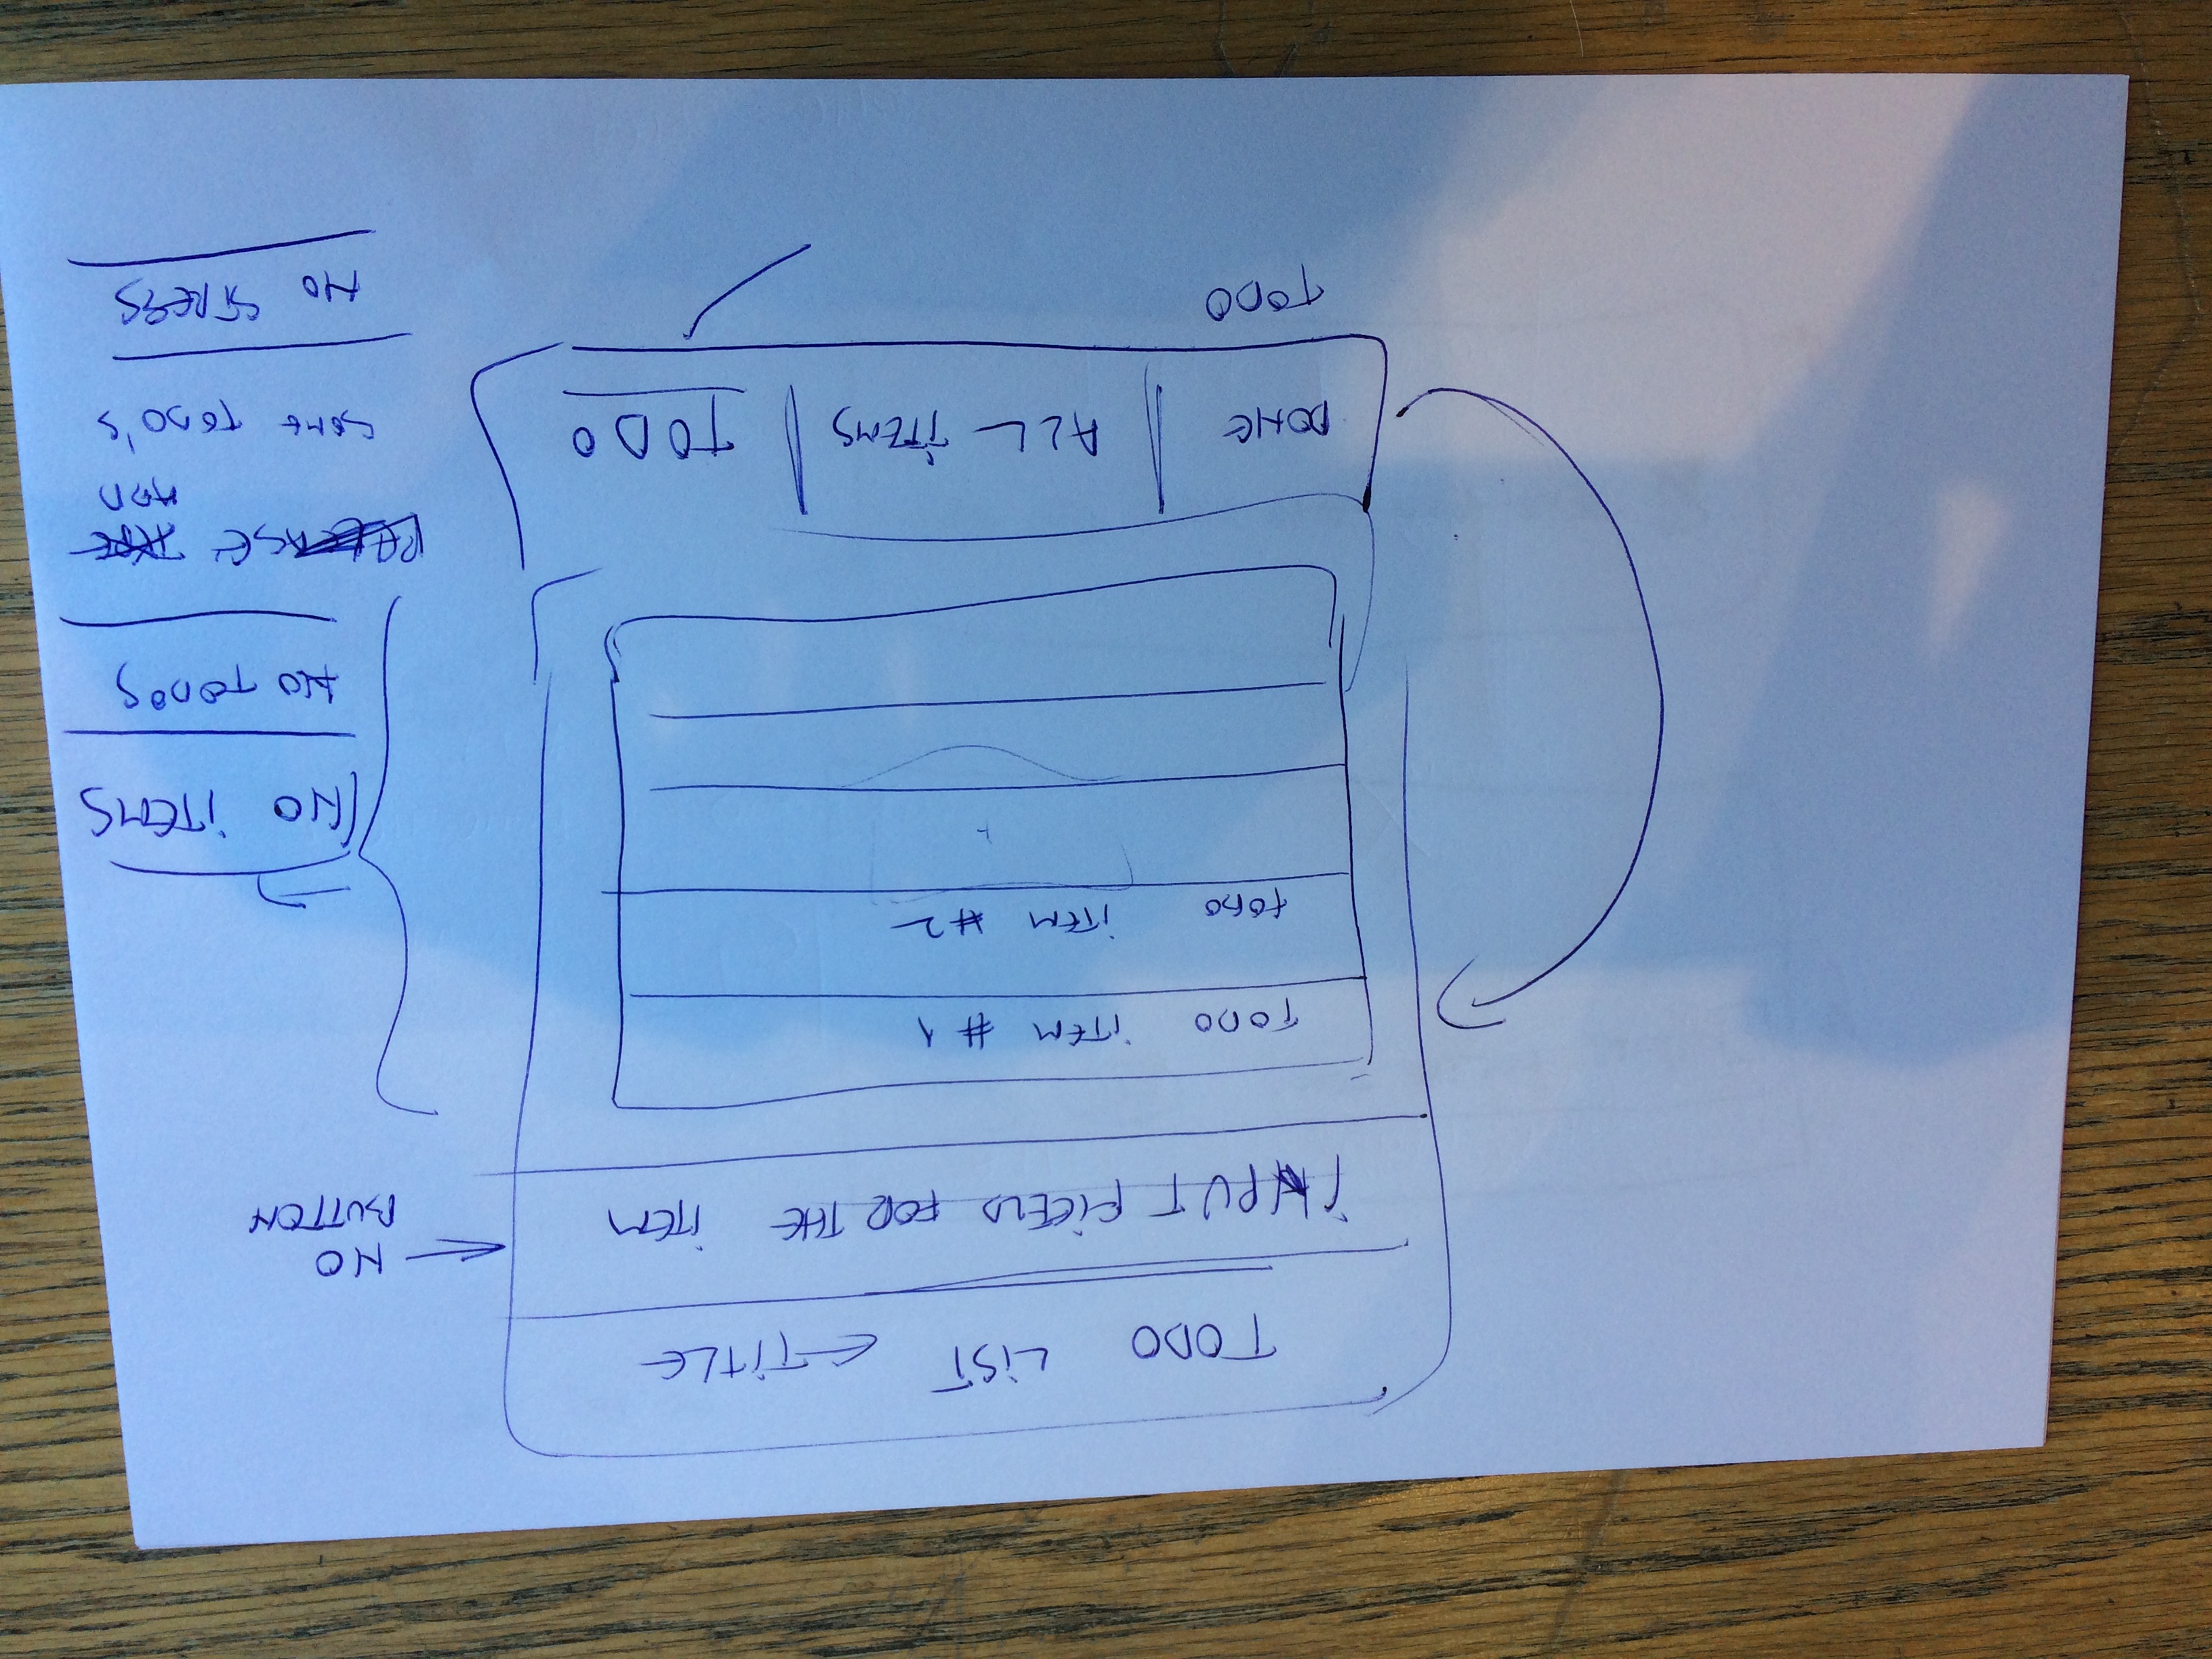 TODO LIST ← TITLE
INPUT FIELD FOR THE ITEM
← NO
BUTTON
TODO ITEM #1
TODO ITEM #2
DONE | ALL ITEMS | TODO
TODO
NO ITEMS
NO TODOS
ADD
SOME TODO'S
NO STRESS